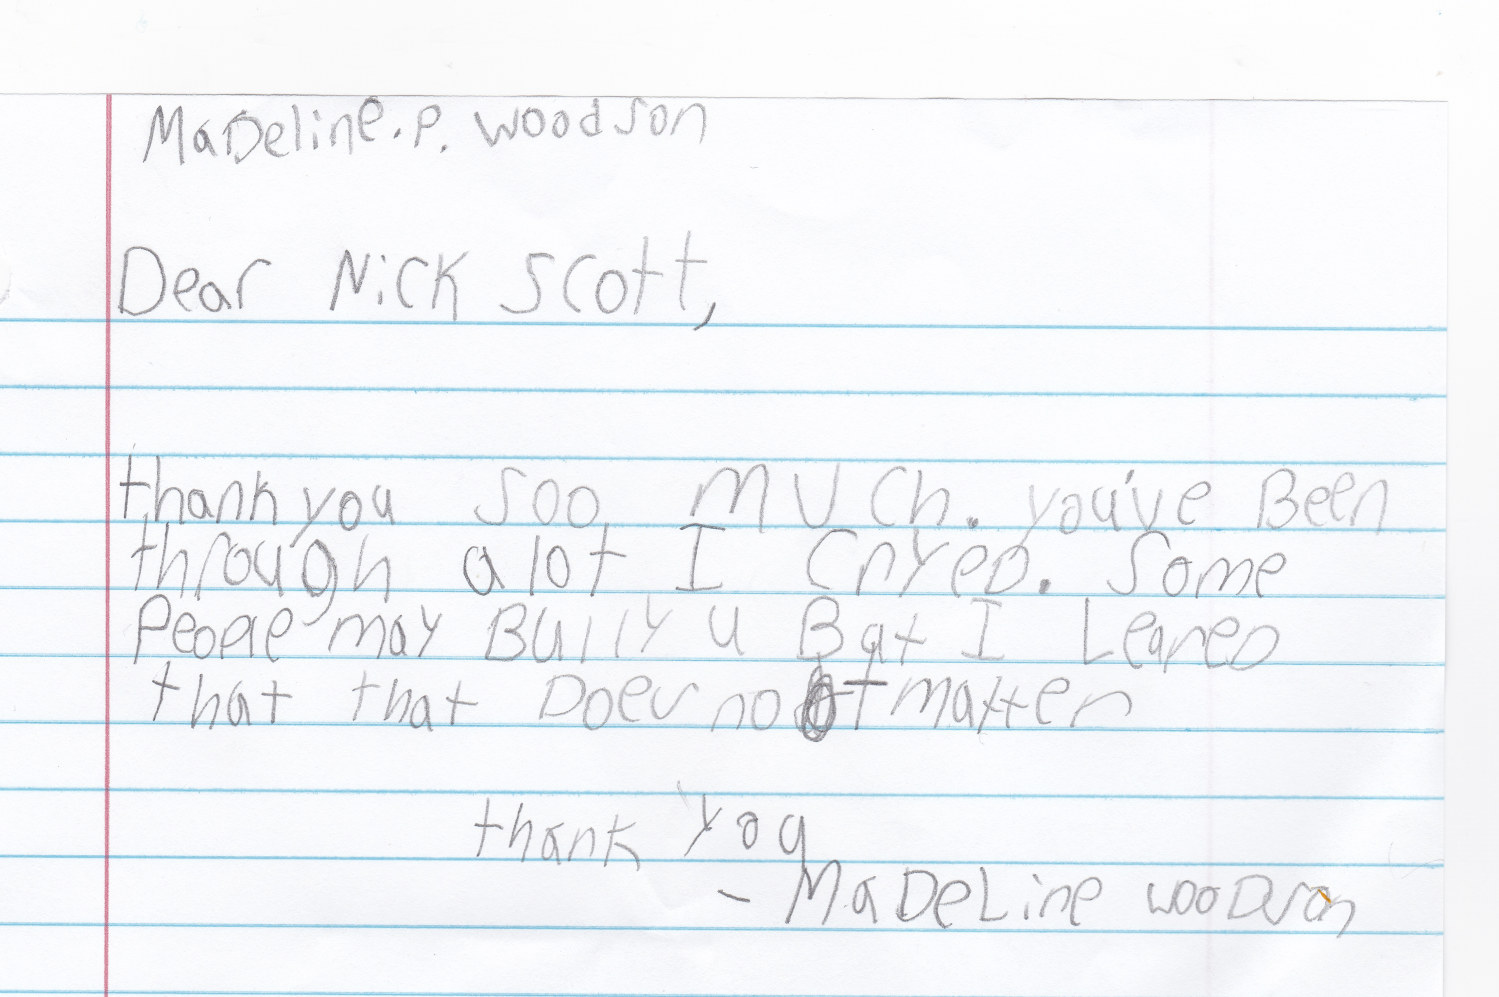 MaDeline. P. Woodson
Dear Nick Scott,
thank you soo MUCh. you've Been
through a lot I CryeD. Some
PeoPle may BUlly u But I LeareD
that that Does not matter
thank you
- MaDeLine WooDson